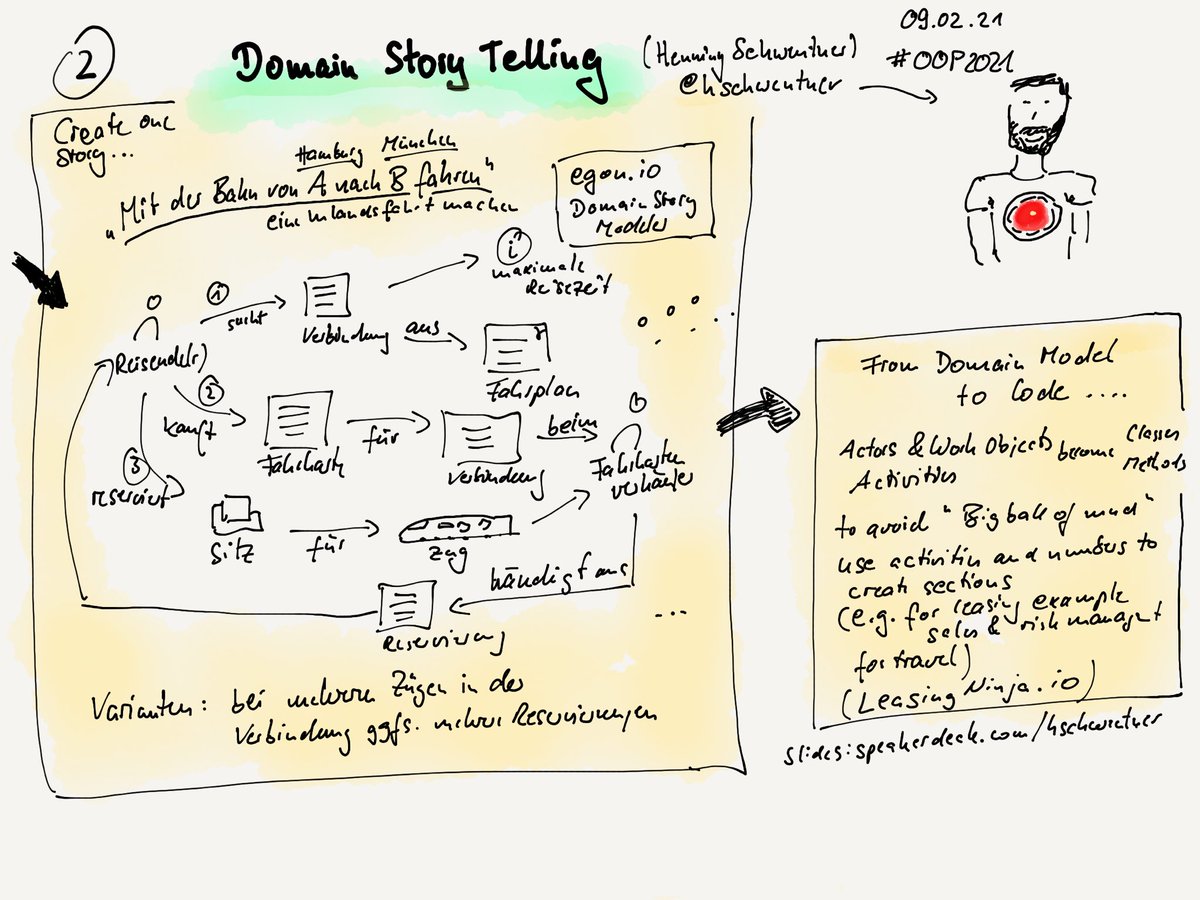 2
Domain Story Telling
(Henning Schwentner)
@hschwentner
09.02.21
#OOP2021
Create one
story...
Hamburg München
"Mit der Bahn von A nach B fahren"
eine Inlandsfahrt machen
egon.io
Domain Story
Modeler
Reisende(r)
1
sucht
Verbindung
i
maximale
Reisezeit
aus
Fahrplan
2
kauft
Fahrkarte
für
Verbindung
beim
Fahrkarten
verkäufer
3
reserviert
Sitz
für
Zug
händigt aus
Reservierung
...
Varianten: bei mehreren Zügen in der
Verbindung ggfs. mehrere Reservierungen
From Domain Model
to Code ....
Actors & Work Objects become Classes
Activities Methods
to avoid "Big ball of mud"
use activities and numbers to
create sections
(e.g. for leasing example
sales & risk managemt
for travel)
(Leasing Ninja.io)
slides: speakerdeck.com/hschwentner